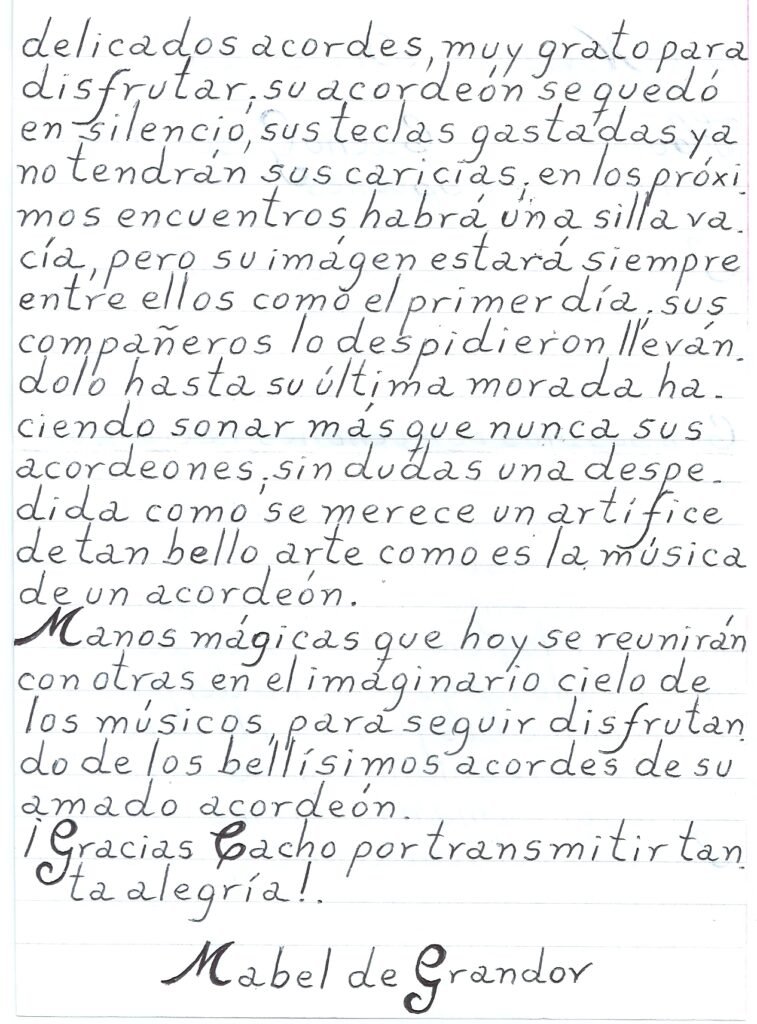 delicados acordes, muy grato para
disfrutar; su acordeón se quedó
en silencio, sus teclas gastadas ya
no tendrán sus caricias; en los próxi.
mos encuentros habrá una silla va.
cía, pero su imágen estará siempre
entre ellos como el primer día; sus
compañeros lo despidieron lleván.
dolo hasta su última morada ha.
ciendo sonar más que nunca sus
acordeones; sin dudas una despe.
dida como se merece un artífice
de tan bello arte como es la música
de un acordeón.
Manos mágicas que hoy se reunirán
con otras en el imaginario cielo de
los músicos, para seguir disfrutan.
do de los bellísimos acordes de su
amado acordeón.
¡Gracias Cacho por transmitir tan.
ta alegría!.
Mabel de Grandor